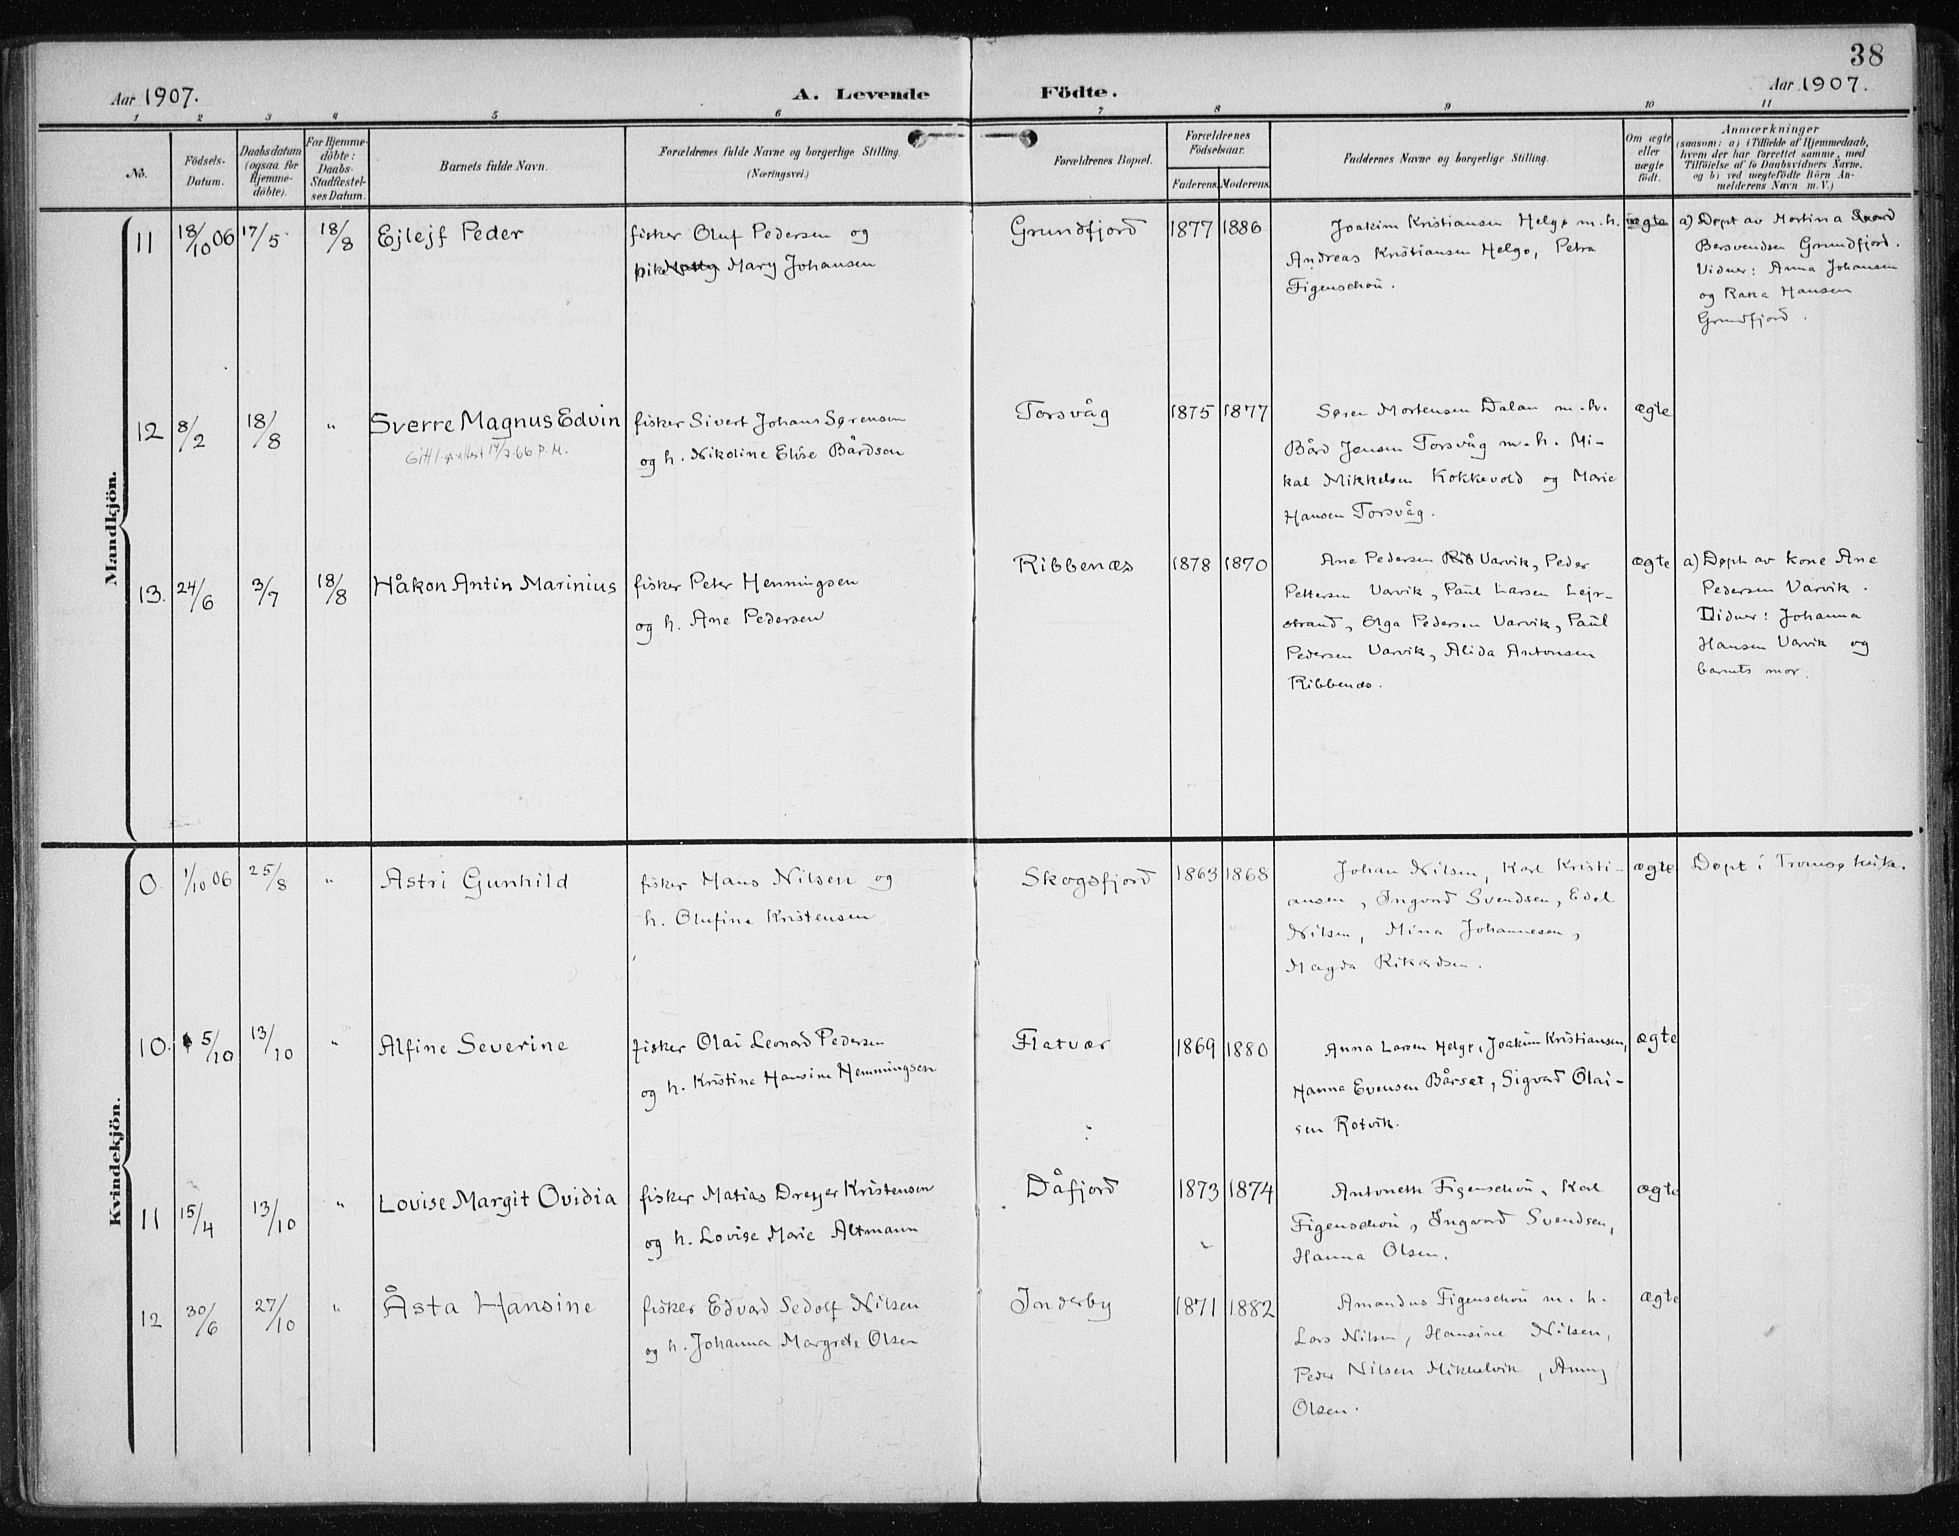 38
Aar 1907.
A. Levende Födte.
Aar 1907.
1 2 3 4 5 6 7 8 9 10 11
No.
Födsels-
Datum.
Daabsdatum
(ogsaa for
Hjemme-
döbte).
For Hjemme-
döbte:
Daabs-
Stadfæstel-
ses Datum.
Barnets fulde Navn.
Forældrenes fulde Navne og borgerlige Stilling.
(Næringsvei.)
Forældrenes Bopæl.
Forældrenes
Födselsaar.
Faderens. Moderens.
Faddernes Navne og borgerlige Stilling.
Om ægte
eller
uægte
födt.
Anmærkninger
(saasom: a) i Tilfælde af Hjemmedaab,
hvem der har forrettet samme, med
Tilföielse af to Daabsvidners Navne,
og b) ved uægtefödte Börn An-
melderens Navn m. V.)
Mandkjön.
11 18/10 06 17/5 18/8 Ejlejf Peder
fisker Oluf Pedersen og
pike Mary Johansen
Grundfjord 1877 1886
Joakim Kristiansen Helgø m.h.
Andreas Kristiansen Helgø, Petra
Figenschou.
uægte
a) Døpt av Martina
Bersvendsen Grundfjord.
Vidner: Anna Johansen
og Rana Hansen
Grundfjord.
12 8/2 18/8 " Sverre Magnus Edvin
14/2-66 P.M.
fisker Sivert Johans Sørensen
og h. Nikoline Elise Bårdsen
Torsvåg 1875 1877
Søren Mortensen Dalan m.h.
Bård Jensen Torsvåg m.h. Mi-
kal Mikkelsen Kokkevold og Marie
Hansen Torsvåg.
ægte
13. 24/6 3/7 18/8 Håkon Antin Marinius
fisker Peter Henningsen
og h. Ane Pedersen
Ribbenæs 1878 1870
Ane Pedersen Rib Varvik, Peder
Pettersen Varvik, Paul Larsen Lejr-
strand, Olga Pedersen Varvik, Paul
Pedersen Varvik, Alida Antonsen
Ribbenæs.
ægte
a) Døpt av kone Ane
Pedersen Varvik.
Vidner: Johanna
Hansen Varvik og
barnets mor.
Kvindekjön.
0. 1/10 06 25/8 " Astri Gunhild
fisker Hans Nilsen og
h. Olufine Kristensen
Skogsfjord 1863 1868
Johan Nilsen, Karl Kristi-
ansen, Ingvard Svendsen, Edel
Nilsen, Mina Johannesen,
Magda Rikardsen.
ægte
Døpt i Tromsø kirke.
10. 5/10 13/10 " Alfine Severine
fisker Olai Leonard Pedersen
og h. Kristine Hansine Hemmingsen
Flatvær 1869 1880
Anna Larsen Helgø, Joakim Kristiansen,
Hanna Evensen Bårset, Sigvard Olai-
sen Rotvik.
ægte
11 15/4 13/10 " Lovise Margit Ovidia
fisker Matias Dreyer Kristensen
og h. Lovise Marie Altmann
Dåfjord 1873 1874
Antoneth Figenschou, Karl
Figenschou, Ingvard Svendsen,
Hanna Olsen.
ægte
12 30/6 27/10 " Åsta Hansine
fisker Edvard Sedolf Nilsen
og h. Johanna Margrete Olsen
Inderby 1871 1882
Amandus Figenschou m.h.
Lars Nilsen, Hansine Nilsen,
Peder Nilsen Mikkelvik, Anny
Olsen.
ægte